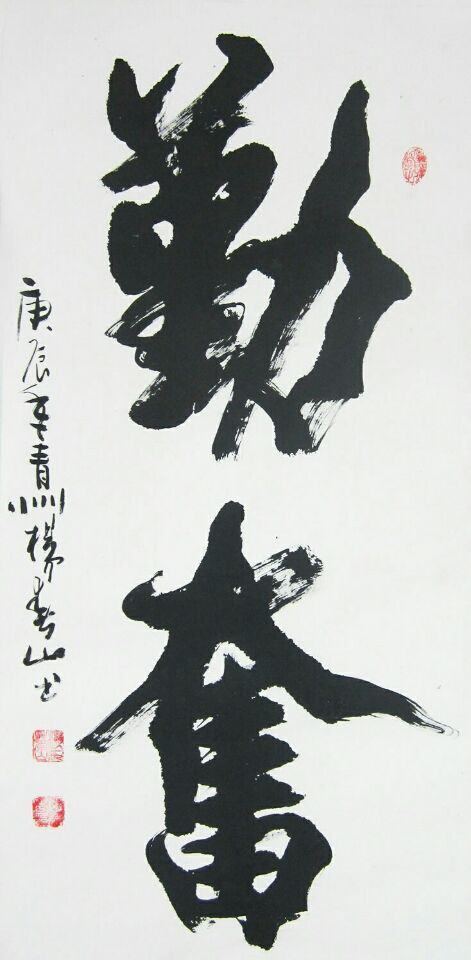 勤奮
庚辰年青州楊春山书